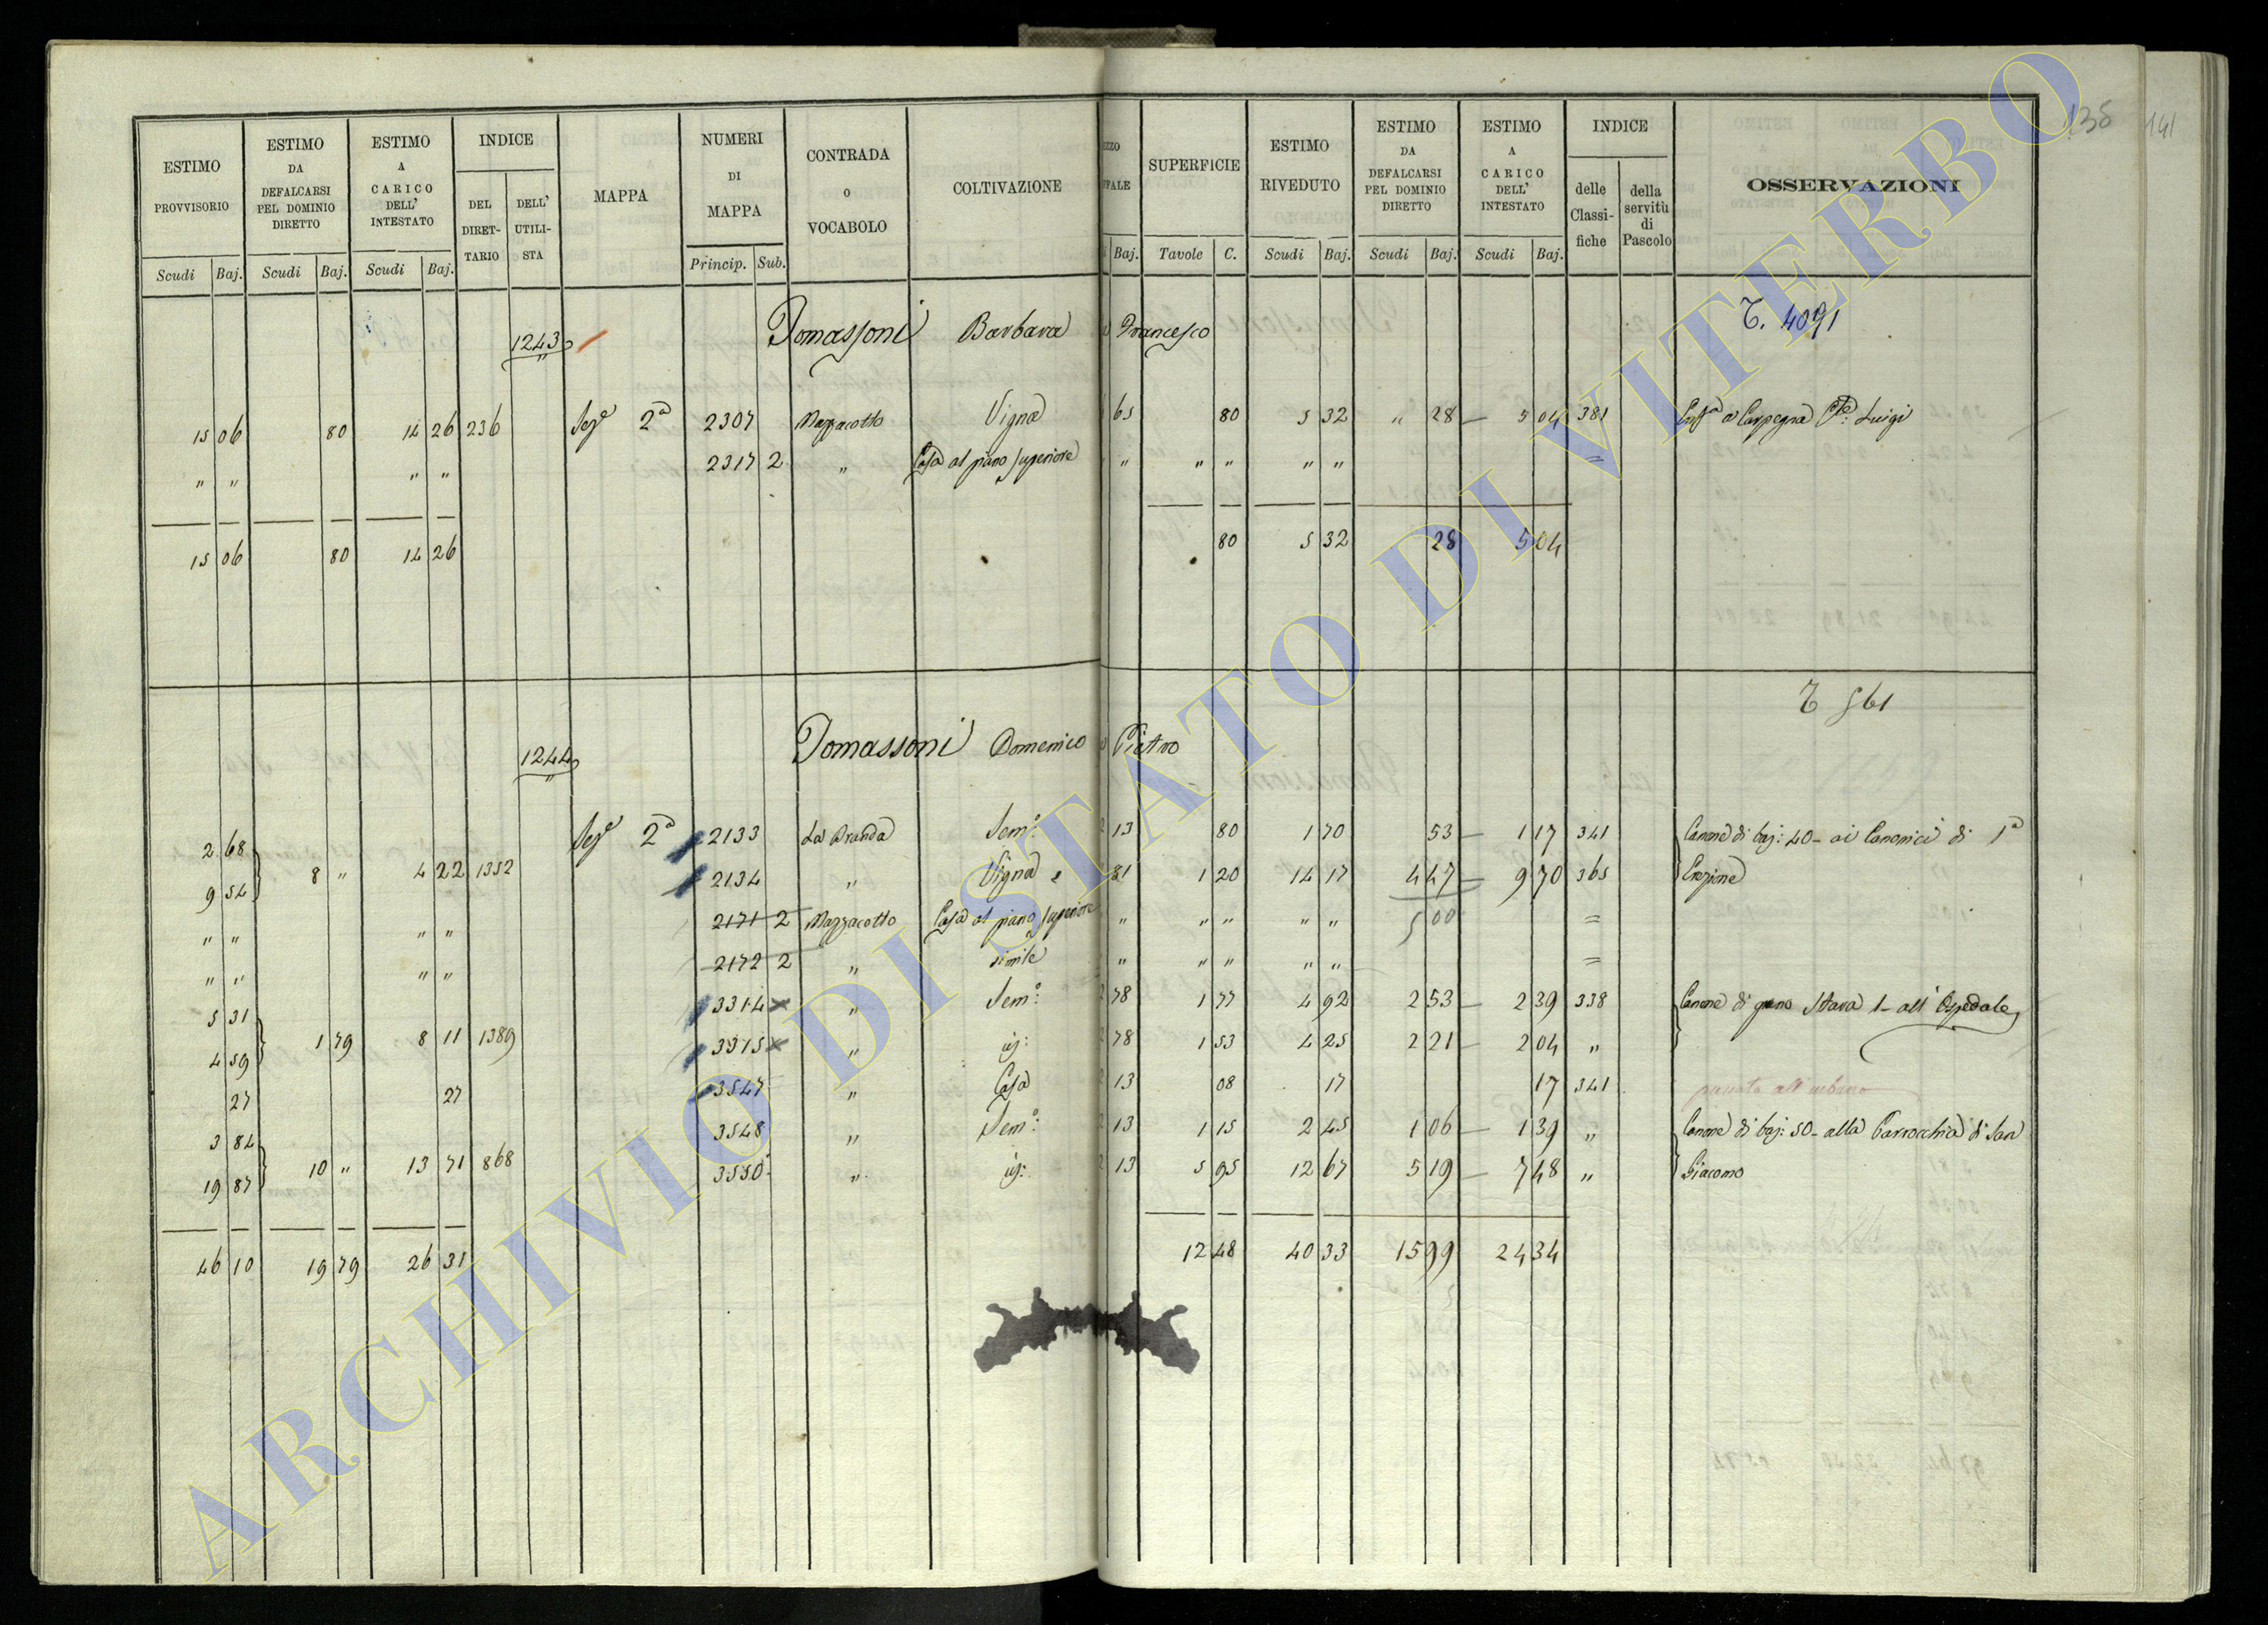 138 141
ESTIMO PROVVISORIO
ESTIMO DA DEFALCARSI PEL DOMINIO DIRETTO
ESTIMO A CARICO DELL' INTESTATO
INDICE
DEL DIRET-TARIO
DELL' UTILI-STA
MAPPA
NUMERI DI MAPPA
CONTRADA O VOCABOLO
COLTIVAZIONE
SUPERFICIE
ESTIMO RIVEDUTO
ESTIMO DA DEFALCARSI PEL DOMINIO DIRETTO
ESTIMO A CARICO DELL' INTESTATO
INDICE
delle Classi-fiche
della servitù di Pascolo
OSSERVAZIONI
Scudi Baj. Scudi Baj. Scudi Baj. Princip. Sub. Baj. Tavole C. Scudi Baj. Scudi Baj. Scudi Baj.
1243 Tomassoni Barbara Francesco T. 4091
15 06 80 14 26 236 Sez.e 2a 2307 Mazzacotto Vigna 65 80 5 32 " 28 — 5 04 381 Carpegna Cte: Luigi
" " " " 2317 2 " Casa al piano superiore " " " " " =
15 06 80 14 26 80 5 32 28 5 04
1244 Tomassoni Domenico Pietro T 561
2 68 Sez.e 2a 2133 La Branda Sem.o: 13 80 1 70 53 — 1 17 341 Canone di baj: 40 - ai Canonici di 1a
9 54 8 " 4 22 1352 2134 " Vigna 81 1 20 14 17 4 47 — 9 70 365 Erezione
" " " " 2171 2 Mazzacotto Casa al piano superiore " " " " " 5 00 =
" " " " 2172 2 " simile " " " " " =
5 31 3314 " Sem.o: 78 1 77 4 92 2 53 — 2 39 338 Canone di grano Stara 1 - all' Ospedale
4 59 1 79 8 11 1389 3315 " 78 1 53 4 25 2 21 — 2 04 "
27 27 3547 " Casa 13 08 17 17 341 passato all'urbano
3 84 3548 " Sem.o: 13 1 15 2 45 1 06 — 1 39 " Canone di baj: 50 - alla Parrocchia di San
19 87 10 " 13 71 868 3550 " 13 5 95 12 67 5 19 — 7 48 " Giacomo
46 10 19 79 26 31 12 48 40 33 15 99 24 34
ARCHIVIO DI STATO DI VITERBO